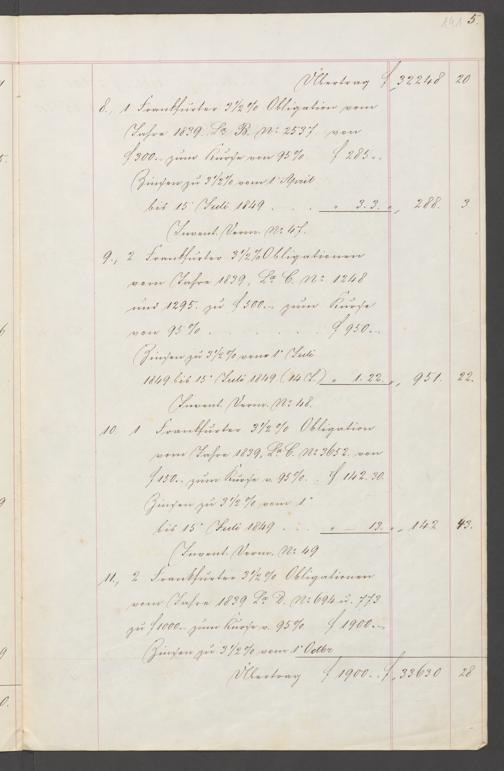 141 5.
Übertrag f 32248 20
8., 1 Frankfurter 3 1/2 % Obligation vom
Jahre 1839. La. B. No. 2537 von
f 300.. zum Kurse von 95% f 285..
Zinsen zu 3 1/2 % vom 1t April
bis 15t Juli 1849 . . . " 3. 3. " 288. 3.
Invent. Verm. No. 47.
9., 2 Frankfurter 3 1/2 % Obligationen
vom Jahre 1839, La. C. No. 1248
und 1295. zu f 500.. zum Kurse
von 95% . . . . . . f 950..
Zinsen zu 3 1/2 % vom 1t Juli
1849 bis 15t Juli 1849 (14 T.) " 1. 22. " 951. 22.
Invent. Verm. No. 48.
10. 1 Frankfurter 3 1/2 % Obligation
vom Jahre 1839, La. C. No. 3652. von
f 150.. zum Kurse v. 95%. . f 142. 30.
Zinsen zu 3 1/2 % vom 1t
bis 15t Juli 1849 . . . " — 13. " 142 43.
Invent. Verm. No. 49
11., 2 Frankfurter 3 1/2 % Obligationen
vom Jahre 1839 La. D. No. 694 u. 773
zu f 1000.. zum Kurse v. 95% f 1900..
Zinsen zu 3 1/2 % vom 1t Octbr.
Übertrag f 1900.. f 33630 28